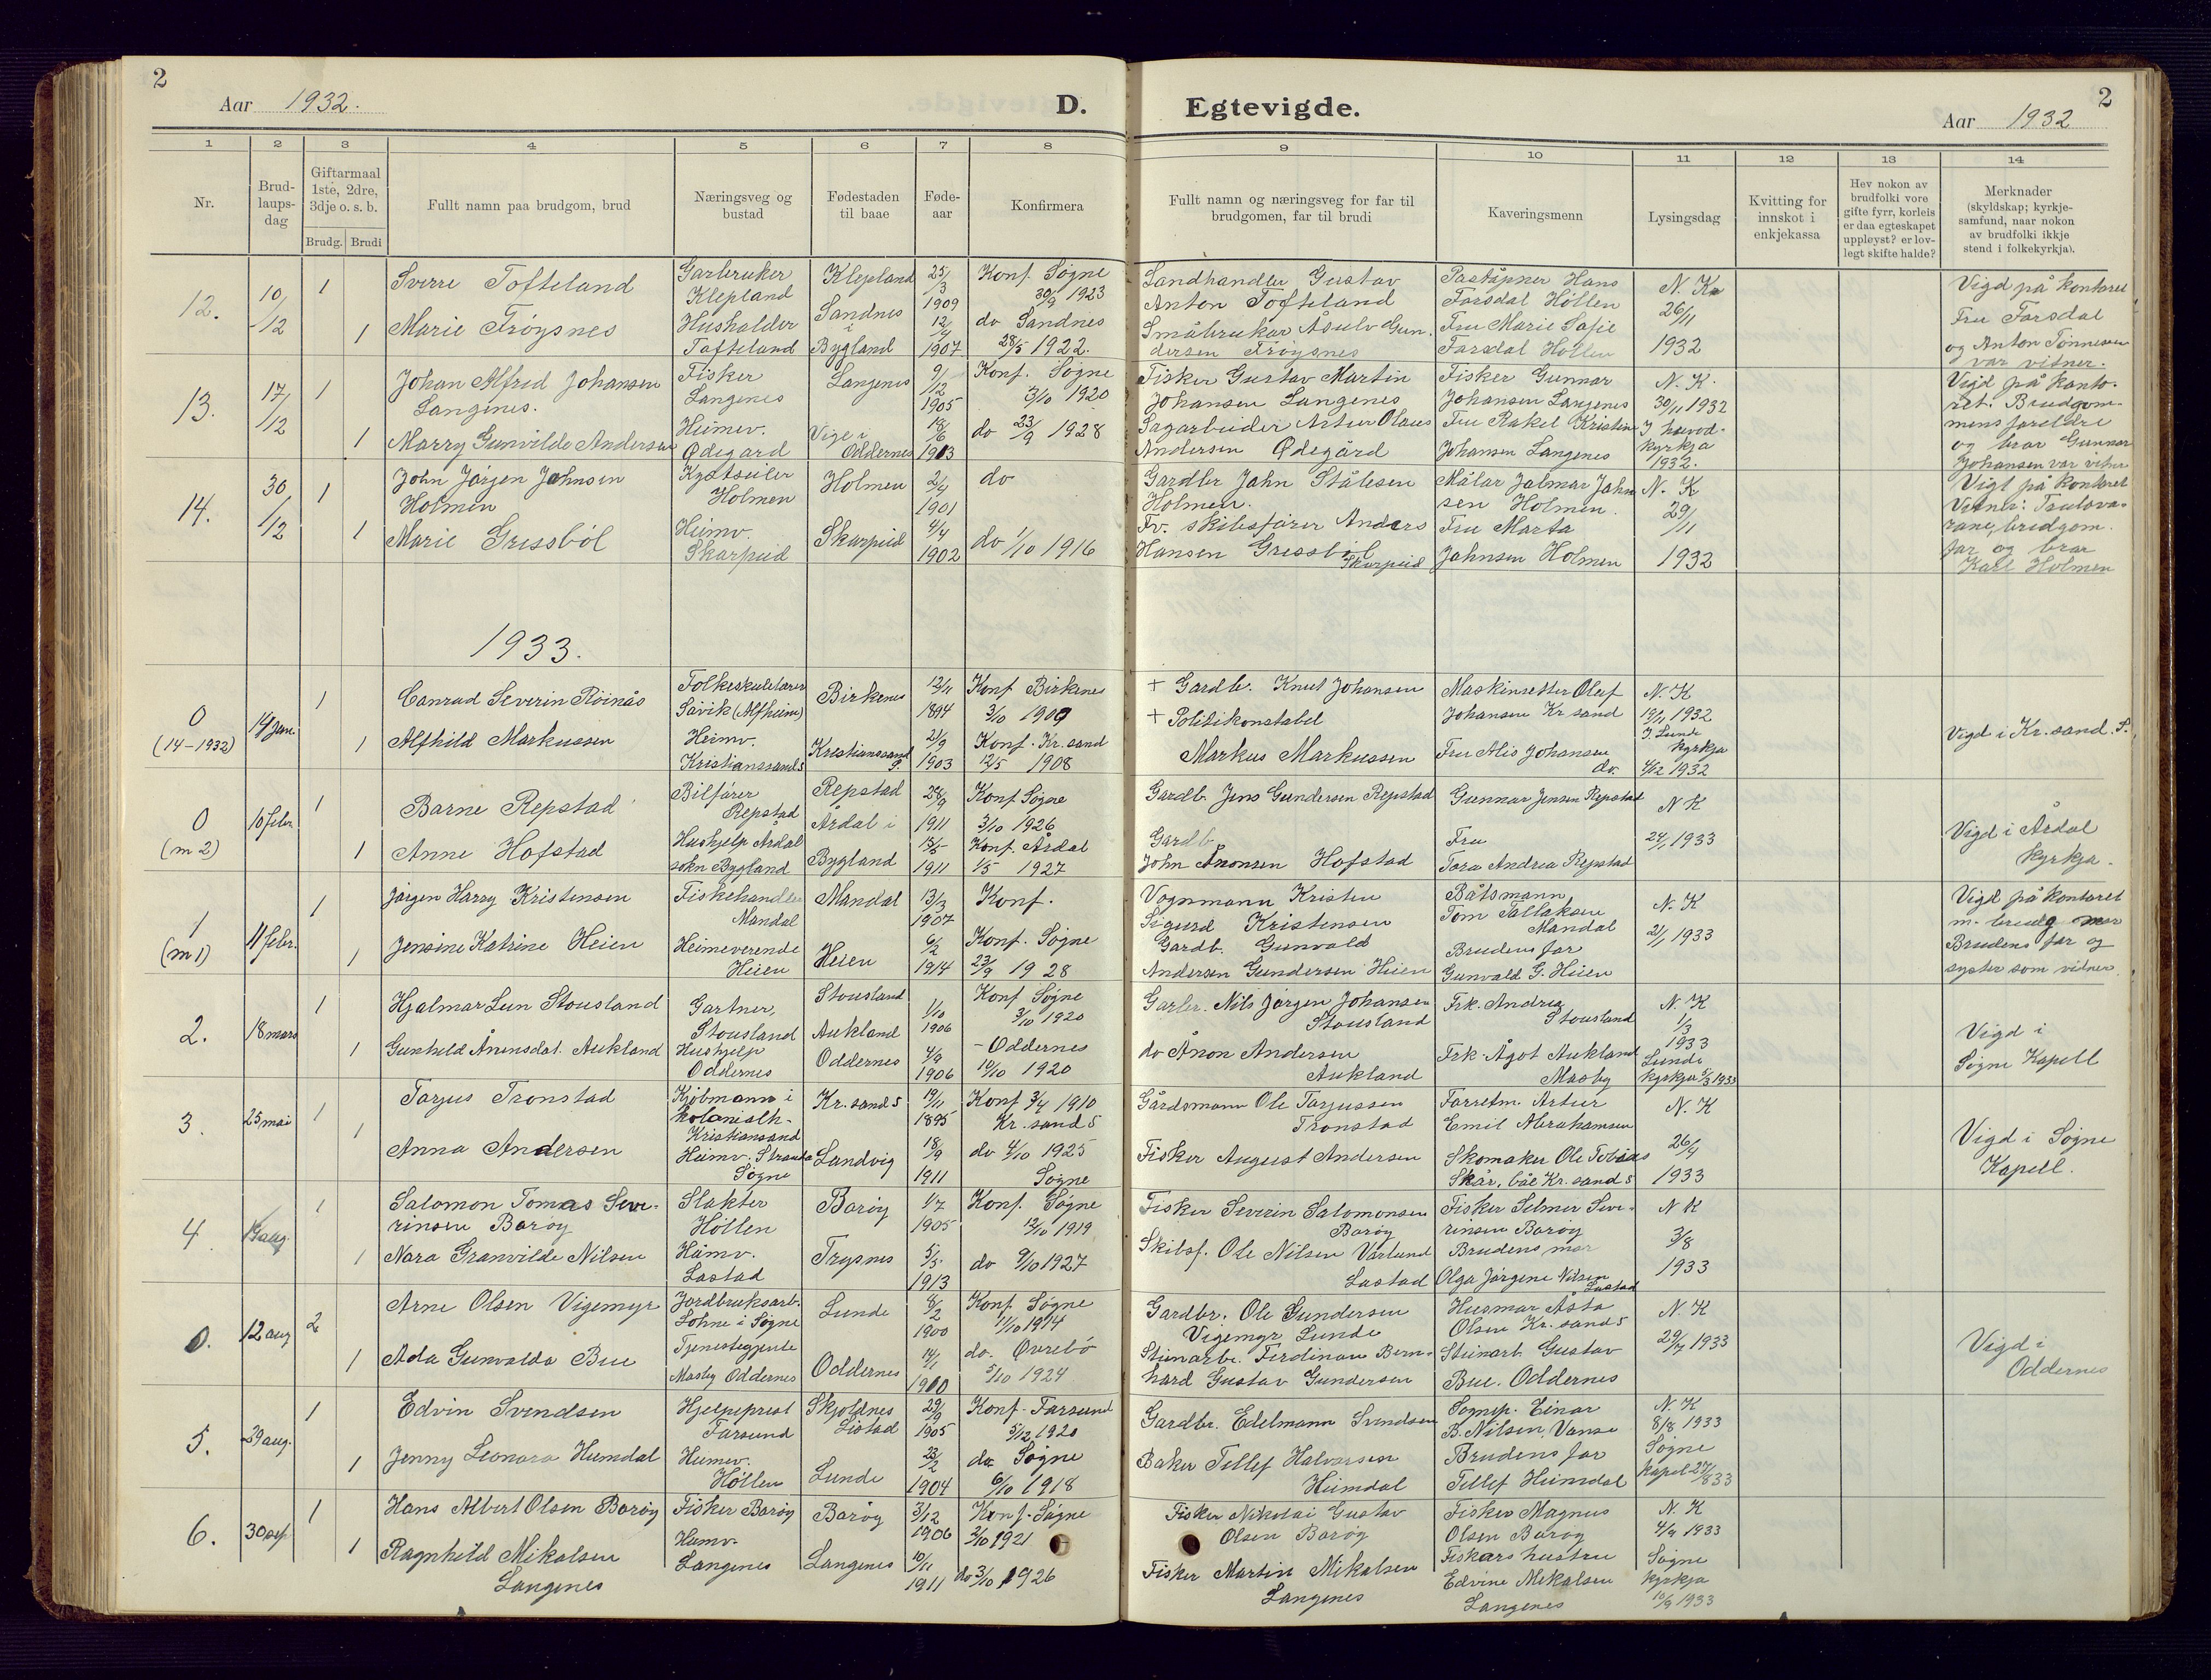 2
Aar 1932.
D.
Egtevigde.
2
Aar 1932
1 2 3 4 5 6 7 8 9 10 11 12 13 14
Nr.
Brud-
laups-
dag
Giftarmaal
1ste, 2dre,
3dje o. s. b.
Brudg. Brudi
Fullt namn paa brudgom, brud
Næringsveg og
bustad
Fødestaden
til baae
Føde-
aar
Konfirmera
Fullt namn og næringsveg for far til
brudgomen, far til brudi
Kaveringsmenn
Lysingsdag
Kvitting for
innskot i
enkjekassa
Hev nokon av
brudfolki vore
gifte fyrr, korleis
er daa egteskapet
uppløyst? er lov-
legt skifte halde?
Merknader
(skyldskap; kyrkje-
samfund, naar nokon
av brudfolki ikkje
stend i folkekyrkja).
12.
10/12
1
Sverre Tofteland
Garbruker
Klepland
Klepland
25/3
1909
Konf. Søgne
30/9 1923
1
Marie Frøysnes
Hushalder
Tofteland
Sandnes
i
Bygland
12/4
1907
do Sandnes
28/5 1922.
Sandhandler Gustav
Anton Tofteland
Småbrukar Åsulv Gun-
dersen Frøysnes
Poståpner Hans
Farsdal Høllen
Fru Marie Sofie
Farsdal Høllen
N. K
26/11
1932
Vigd på kontoret
Fru Farsdal
og Anton Tønnesen
var vitner.
13.
17/12
1
Johan Alfred Johansen
Langenes.
Fisker
Langenes
Langenes
9/12
1905
Konf. Søgne
3/10 1920
1
Marry Gunvilde Andersen
Heimev.
Ødegård
Vige i
Oddernes
18/6
1913
do 23/9 1928
Fisker Gustav Martin
Johansen Langenes
Sagarbeider Artur Olaus
Andersen Ødegård
Fisker Gunnar
Johansen Langenes
Fru Rakel Kristine
Johansen Langenes
N. K.
30/11 1932
I hovod-
kyrkja
1932.
Vigd på konto-
ret. Brudgom-
mens foreldre
og bror Gunnar
Johansen var vitner
14.
30/12
1
John Jörgen Johnsen
Holmen
Holmen
Holmen
2/4
1901
do
1
Marie Gressböl
Heimv.
Skarpeid
Skarpeid
4/4
1902
do 1/10 1916
Gardbr John Stålesen
Holmen.
Fv. skibsförer Anders
Hansen Gressböl
Skarpeid
Målar Jalmar John
sen Holmen.
Fru Marta
Johnsen Holmen
N. K
29/11
1932
Vigt på kontoret
Vitner: Trulova-
rane, brudgom.
far og bror
Karl Holmen
1933.
0
(14-1932)
14 jan.
1
Conrad Severin Röinås
Folkeskulelærer
Såvik (Alfheim)
Birkenes
12/4
1894
Konf Birkenes
3/10 1909
1
Alfhild Markussen
Heimv.
Kristianssand S
Kristianssand
S.
21/9
1903
Konf. Kr. sand
12/5 1908
+ Gardb. Knut Johansen
+ Politikonstabel
Markus Markussen
Maskinsetter Olaf
Johansen Kr sand
Fru Alis Johansen
do.
N. K
19/11 1932
I. Lunde
kyrkja
4/12 1932
Vigd i Kr. sand. S.
0
(m 2)
10 febr
1
Barne Repstad
Bilförer
Repstad
Repstad
28/9
1911
Konf Søgne
3/10 1926
1
Anne Hofstad
Hushjelp Årdal
sokn Bygland
Årdal i
Bygland
15/5
1911
Konf. Årdal
1/5 1927
Gardb. Jens Gundersen Repstad
Gardb.
John Åronsen Hofstad
Gunnar Jensen Repstad
Fru
Tora Andrea Repstad
N K
24/1 1933
Vigd i Årdal
kyrkja.
1
(m 1)
11 febr.
1
Jörgen Harry Kristensen
Fiskehandler
Mandal
Mandal
13/3
1907
Konf.
1
Jensine Katrine Heien
Heimeverende
Heien
Heien
6/2
1914
Konf. Søgne
23/9 1928
Vognmann Kristen
Sigurd Kristensen
Gardb. Gunvald
Andersen Gundersen Heien
Båtsmann
Tom Tallaksen
Mandal
Brudens far
Gunvald G. Heien
N. K
21/1 1933
Vigd på kontoret
Brudens far og
syster som vitner.
2.
18 mars
1
Hjalmar Lun Stousland
Gartner,
Stousland
Stousland
1/10
1906
Konf Søgne
3/10 1920
1
Gunhild Ånensdat. Aukland
Hushjelp
Oddernes
Aukland
Oddernes
4/9
1906
- Oddernes
10/10 1920
Garbr. Nils Jörgen Johansen
Stousland
do Ånon Andersen
Aukland
Frk. Andrea
Stousland
Frk. Ågot Aukland
Mosby
N. K
1/3
1933
Lunde
kyrkja 5/3 1933
Vigd i
Søgne Kapell
3.
25 mai
1
Tarjus Tronstad
Kjöbmann i
kolonialh-
Kristiansand
Kr. sand S
19/11
1895
Konf 3/4 1910
Kr. sand S
1
Anna Andersen
Heimv. Stranda
Søgne
Landvig
18/9
1911
do 4/10 1925
Søgne
Gårdsmann Ole Tarjussen
Tronstad
Fisker August Andersen
Forretm. Artur
Emil Abrahamsen
Skomaker Ole Tobias
Skår, båe Kr. sand S
N. K
26/4
1933
Vigd i Søgne
Kapell.
4
aug.
1
Salomon Tomas Seve-
rinsen Borøy
Slakter
Höllen
Borøy
1/7
1905
Konf. Søgne
12/10 1919
1
Nora Granvilde Nilsen
Heimv.
Lastad
Trysnes
5/5
1913
do 9/10 1927
Fisker Severin Salomonsen
Borøy
Skibsf. Ole Nilsen Varlund
Lastad
Fisker Selmer Seve-
rinsen Borøy
Brudens mor
Olga Jörgene Nilsen
Lastad
N K
3/8
1933
0.
12 aug
2
Arne Olsen Vigemyr
Jordbruksarb.
Lohne i Søgne
Lunde
8/2
1900
Konf. Søgne
1/10 1914
1
Ada Gunvalda Bue
Tjenestegjente
Mosby Oddernes
Oddernes
14/1
1910
do. Øvrebö
5/10 1924
Gardbr. Ole Gundersen
Vigemyr Lunde
Steinarb. Ferdinan Bern-
hard Gustav Gundersen
Husmor Åsta
Olsen Kr. sand S
Steinarb. Gustav
Bue. Oddernes
N K
29/7 1933
Vigd i
Oddernes
5.
29 aug.
1
Edvin Svendsen
Hjelpeprest
Farsund
Skjoldnes
Listad
29/9
1905
Konf. Farsund
5/12 1920
1
Jenny Leonora Heimdal
Heimev.
Höllen
Lunde
23/2
1904
do Søgne
6/10 1918
Gardbr. Edelmann Svendsen
Baker Tellef Halvorsen
Heimdal
Sognep. Einar
B. Nilsen, Vanse
Brudens far
Tellef Heimdal
N. K
8/8 1933
Søgne
kapel 27/8 33
6.
30 sep.
1
Hans Albert Olsen Borøy
Fisker Borøy
Borøy
3/12
1906
Konf. Søgne
2/10 1921
1
Ragnhild Mikalsen
Langenes
Heimv.
Langenes
Langenes
10/11
1911
do 3/10 1926
Fisker Nikolai Gustav
Olsen Borøy
Fisker Martin Mikalsen
Langenes
Fisker Magnus
Olsen Borøy
Fiskars hustru
Edvine Mikalsen
Langenes
N. K
4/9 1933
Søgne
kyrkja
10/9 1933